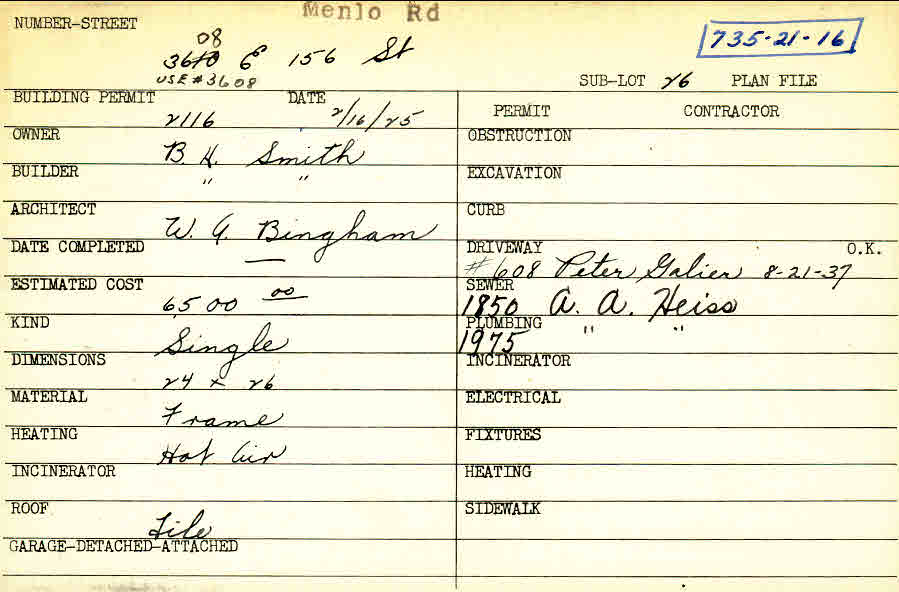 Menlo Rd
NUMBER-STREET
08
3610 E 156 St
USE #3608
735-21-16
SUB-LOT 26 PLAN FILE
BUILDING PERMIT DATE
2116 2/16/25
PERMIT CONTRACTOR
OWNER
B. H. Smith
OBSTRUCTION
BUILDER
" "
EXCAVATION
ARCHITECT
W. G. Bingham
CURB
DATE COMPLETED
—
DRIVEWAY O.K.
#608 Peter Galier 8-21-37
ESTIMATED COST
6500 00
SEWER
1850 A. A. Heiss
KIND
Single
PLUMBING " "
1975
DIMENSIONS
24 x 26
INCINERATOR
MATERIAL
Frame
ELECTRICAL
HEATING
Hot Air
FIXTURES
INCINERATOR
HEATING
ROOF
Tile
SIDEWALK
GARAGE-DETACHED-ATTACHED